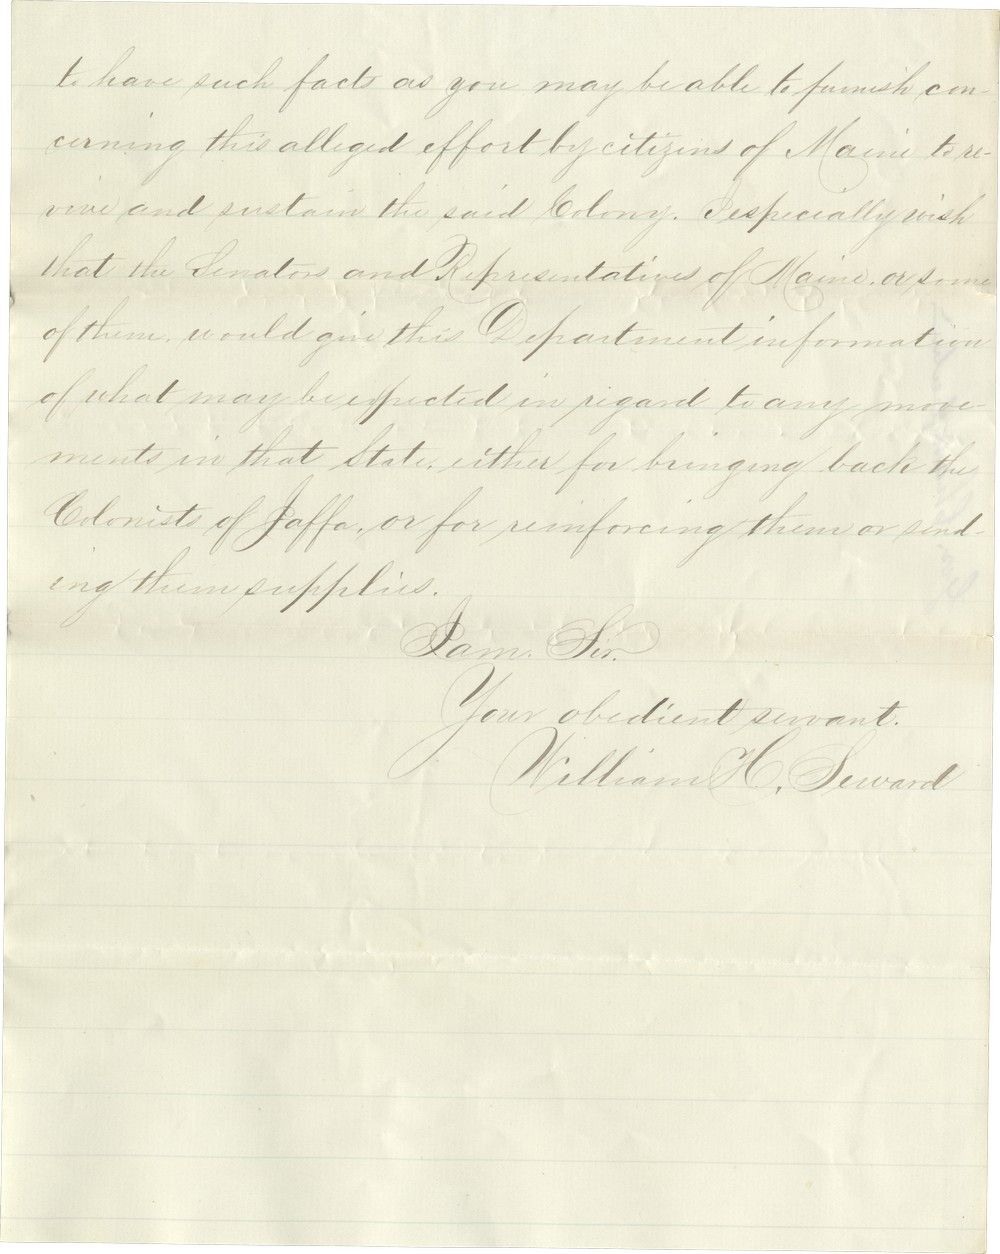 to have such facts as you may be able to furnish con-
cerning this alleged effort by citizens of Maine to re-
vive and sustain the said Colony. I especially wish
that the Senators and Representatives of Maine, or some
of them, would give this Department information
of what may be expected in regard to any move-
ments in that State, either for bringing back the
Colonists of Jaffa, or for reinforcing them or send-
ing them supplies.
I am, Sir,
Your obedient servant.
William H. Seward